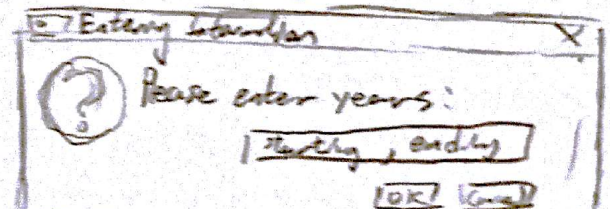 Entering Information
?
Please enter years:
starting, ending
OK Cancel